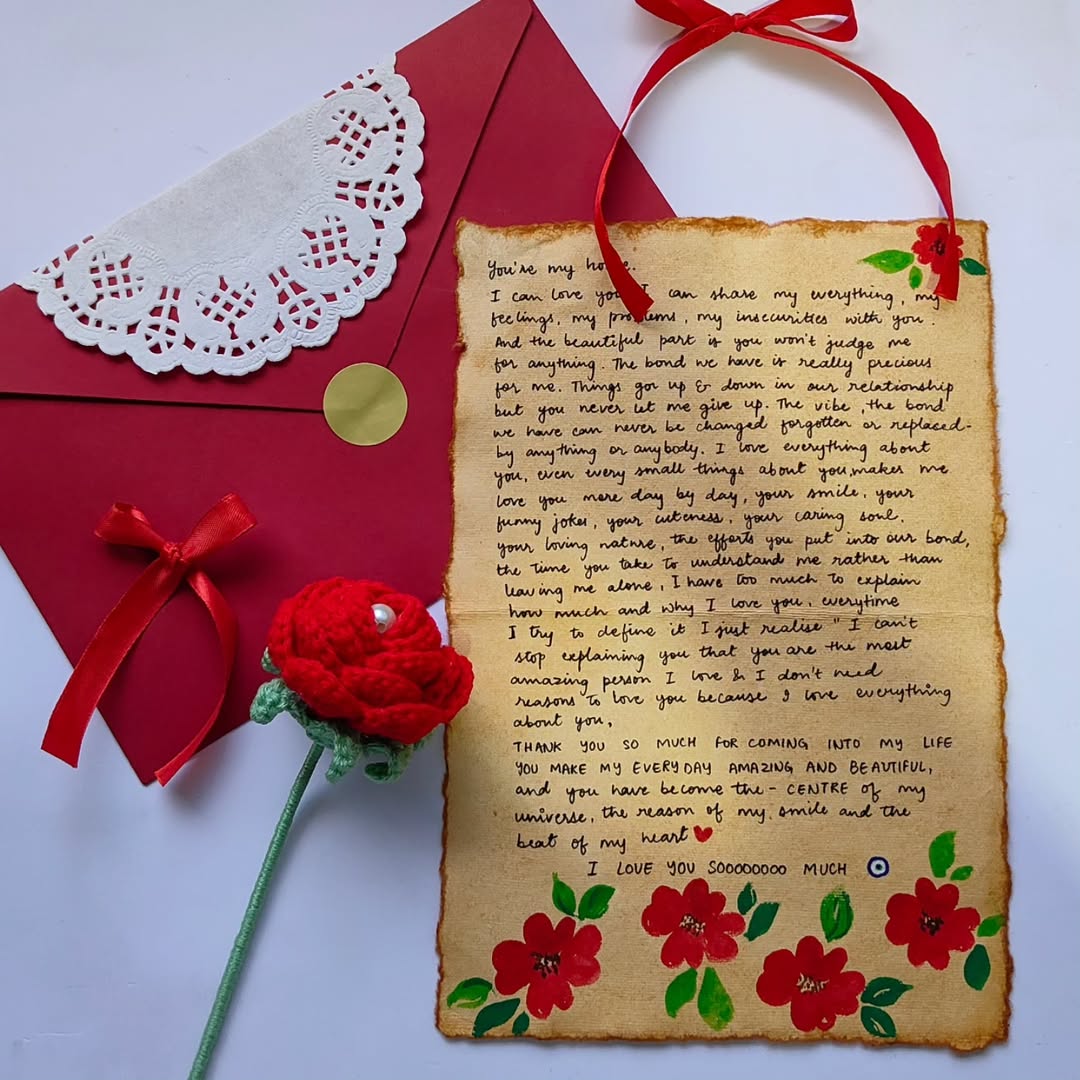 You're my home.
I can love you I can share my everything, my
feelings, my problems, my insecurities with you.
And the beautiful part is you won't judge me
for anything. The bond we have is really precious
for me. Things go up & down in our relationship
but you never let me give up. The vibe, the bond
we have can never be changed forgotten or replaced-
by anything or anybody. I love everything about
you, even every small things about you, makes me
love you more day by day, your smile, your
funny jokes, your cuteness, your caring soul,
your loving nature, the efforts you put into our bond,
the time you take to understand me rather than
leaving me alone, I have too much to explain
how much and why I love you, everytime
I try to define it I just realise " I can't
stop explaining you that you are the most
amazing person I love & I don't need
reasons to love you because I love everything
about you,
THANK YOU SO MUCH FOR COMING INTO MY LIFE
YOU MAKE MY EVERYDAY AMAZING AND BEAUTIFUL,
and you have become the - CENTRE of my
universe, the reason of my smile and the
beat of my heart
I LOVE YOU SOOOOOOOO MUCH